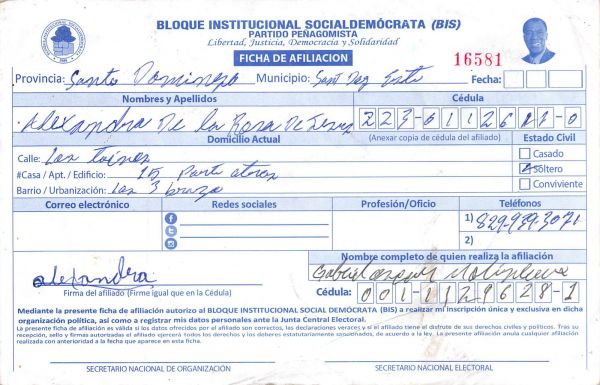 BLOQUE INSTITUCIONAL SOCIALDEMÓCRATA (BIS)
PARTIDO PEÑAGOMISTA
Libertad, Justicia, Democracia y Solidaridad
FICHA DE AFILIACION
16581
Provincia: Santo Domingo Municipio: Sant Dgo Este Fecha:
Nombres y Apellidos Cédula
Alexandra De La Rosa De Jesus
Domicilio Actual (Anexar copia de la cédula del afiliado) Estado Civil
Calle: Las
#Casa / Apt. / Edificio: 15 Parte atras
Barrio / Urbanización: Las 3 brazo
Casado
Soltero
Conviviente
Correo electrónico Redes sociales Profesión/Oficio Teléfonos
1) 829-939-3071
2)
Nombre completo de quien realiza la afiliación
alexandra Gabriel
Firma del afiliado (Firme igual que en la Cédula) Cédula: 001-1129628-1
Mediante la presente ficha de afiliación autorizo al BLOQUE INSTITUCIONAL SOCIAL DEMÓCRATA (BIS) a realizar mi inscripción única y exclusiva en dicha
organización política, así como a registrar mis datos personales ante la Junta Central Electoral.
La presente ficha de afiliación es válida si los datos ofrecidos por el afiliado son correctos, las declaraciones veraces y si el afiliado tiene el disfrute de sus derechos civiles y políticos. Tras su
recepción, sello y firmas autorizadas el afiliado ejercerá todos los derechos y los deberes estatutariamente sancionados, de acuerdo a la ley. La presente afiliación anula cualquier afiliación
realizada con anterioridad a la fecha que aparece en esta ficha.
SECRETARIO NACIONAL DE ORGANIZACIÓN SECRETARIO NACIONAL ELECTORAL